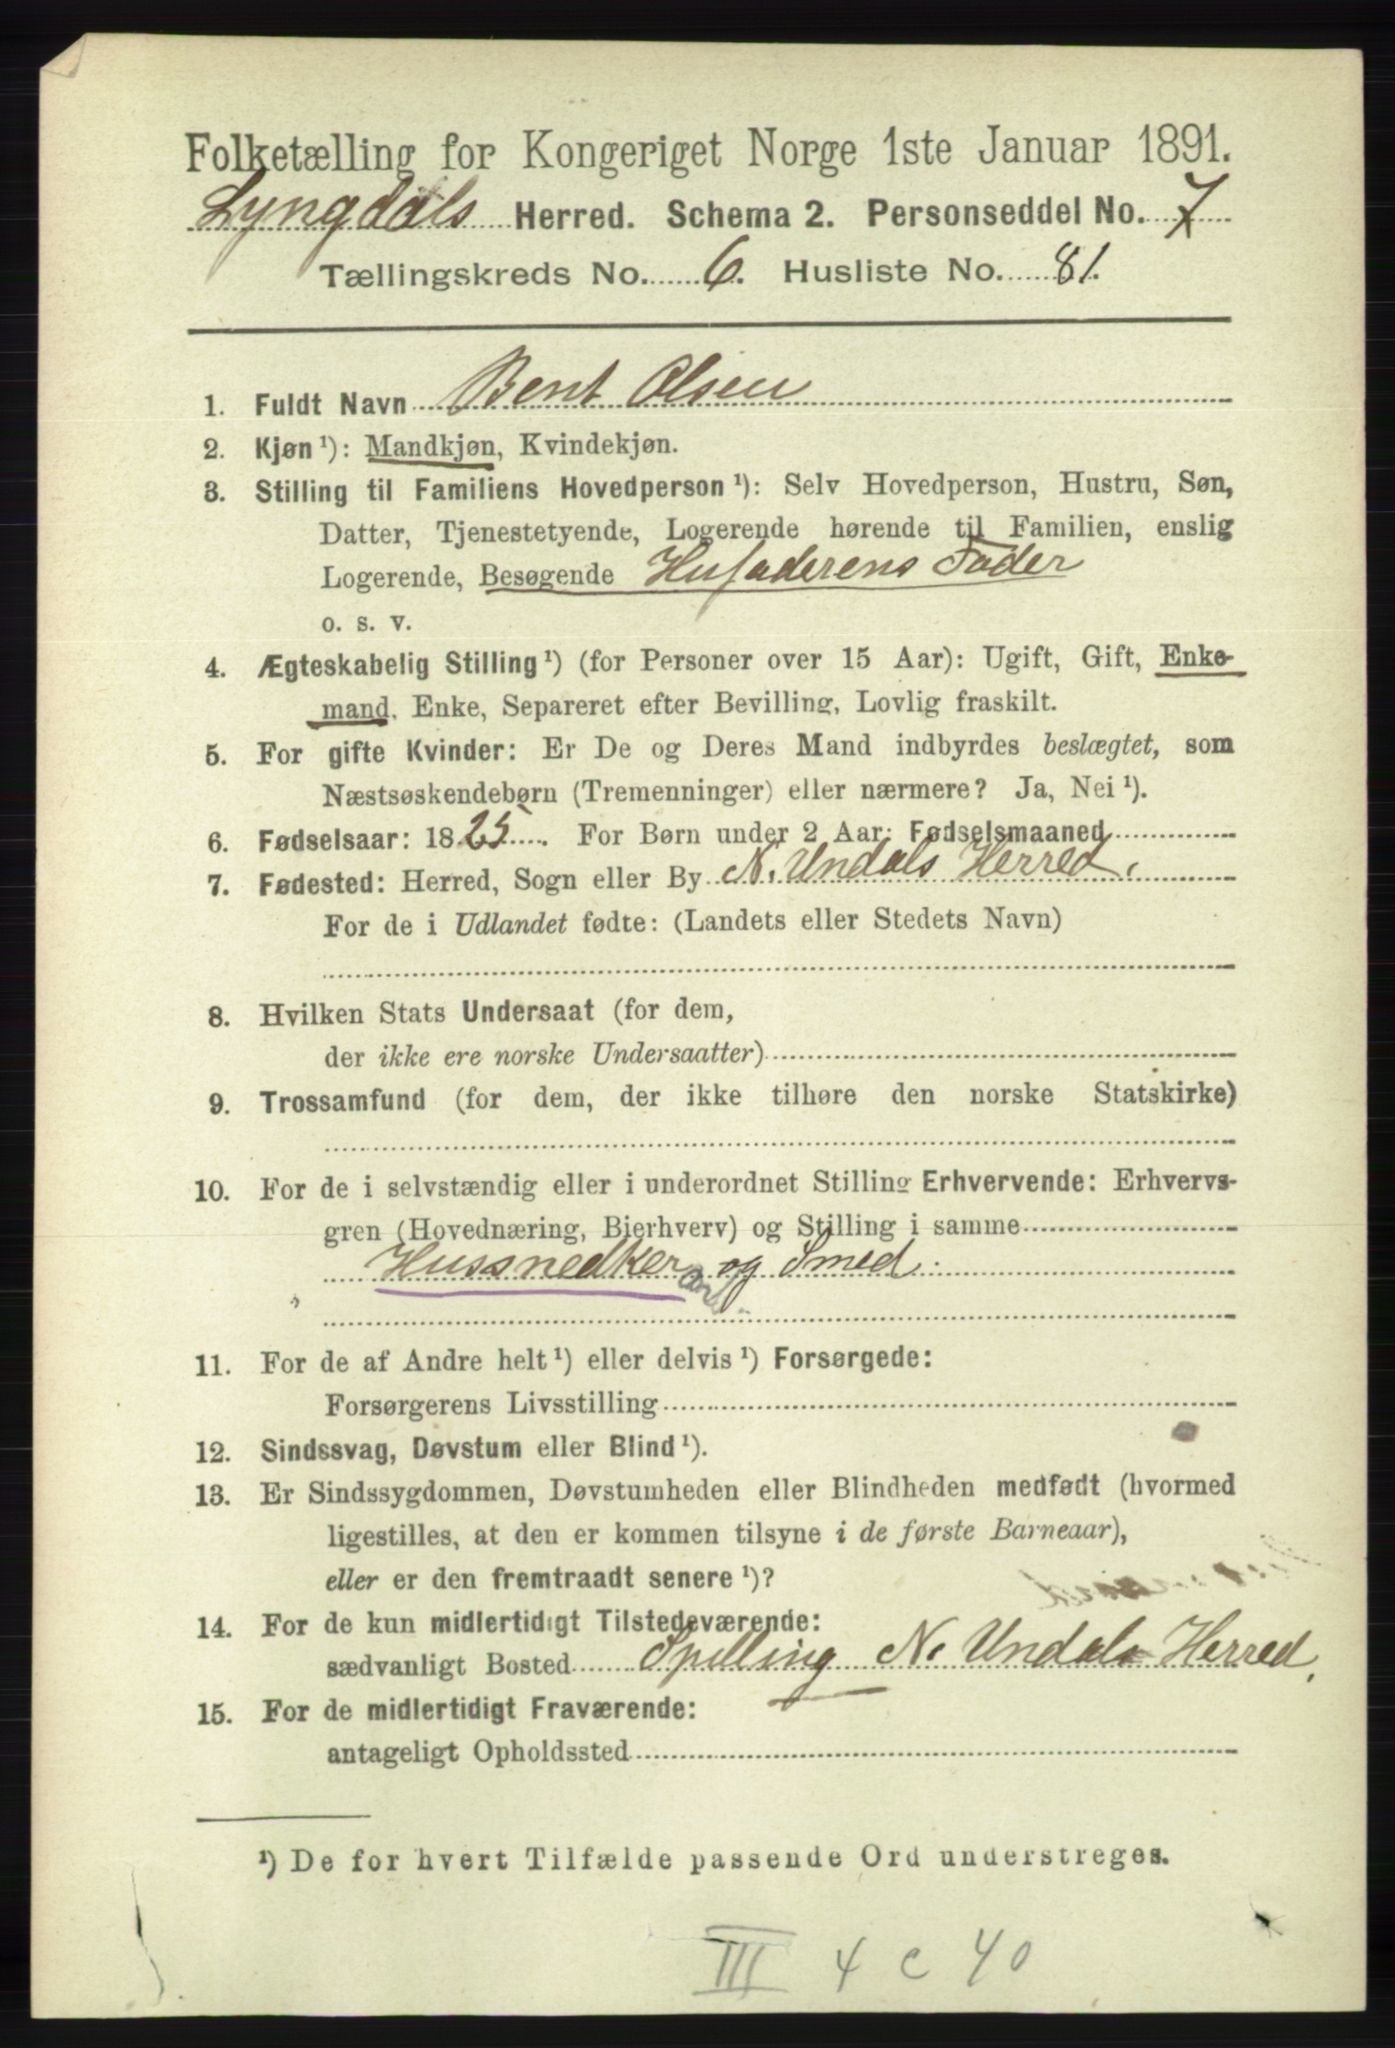 Folketælling for Kongeriget Norge 1ste Januar 1891.
Lyngdals Herred. Schema 2. Personseddel No. 7
Tællingskreds No. 6. Husliste No. 81.
1. Fuldt Navn Bent Olsen
2. Kjøn ¹): Mandkjøn, Kvindekjøn.
3. Stilling til Familiens Hovedperson ¹): Selv Hovedperson, Hustru, Søn,
Datter, Tjenestetyende, Logerende hørende til Familien, enslig
Logerende, Besøgende Husfaderens Fader
o. s. v.
4. Ægteskabelig Stilling ¹) (for Personer over 15 Aar): Ugift, Gift, Enke-
mand, Enke, Separeret efter Bevilling, Lovlig fraskilt.
5. For gifte Kvinder: Er De og Deres Mand indbyrdes beslægtet, som
Næstsøskendebørn (Tremenninger) eller nærmere? Ja, Nei ¹).
6. Fødselsaar: 1825. For Børn under 2 Aar: Fødselsmaaned
7. Fødested: Herred, Sogn eller By N. Undals Herred.
For de i Udlandet fødte: (Landets eller Stedets Navn)
8. Hvilken Stats Undersaat (for dem,
der ikke ere norske Undersaatter)
9. Trossamfund (for dem, der ikke tilhøre den norske Statskirke)
10. For de i selvstændig eller i underordnet Stilling Erhvervende: Erhvervs-
gren (Hovednæring, Bierhverv) og Stilling i samme
Hussnedker og Smed.
11. For de af Andre helt ¹) eller delvis ¹) Forsørgede:
Forsørgerens Livsstilling
12. Sindssvag, Døvstum eller Blind ¹).
13. Er Sindssygdommen, Døvstumheden eller Blindheden medfødt (hvormed
ligestilles, at den er kommen tilsyne i de første Barneaar),
eller er den fremtraadt senere ¹)?
14. For de kun midlertidigt Tilstedeværende:
sædvanligt Bosted Spilling N. Undals Herred.
15. For de midlertidigt Fraværende:
antageligt Opholdssted
¹) De for hvert Tilfælde passende Ord understreges.
III 4 c 40